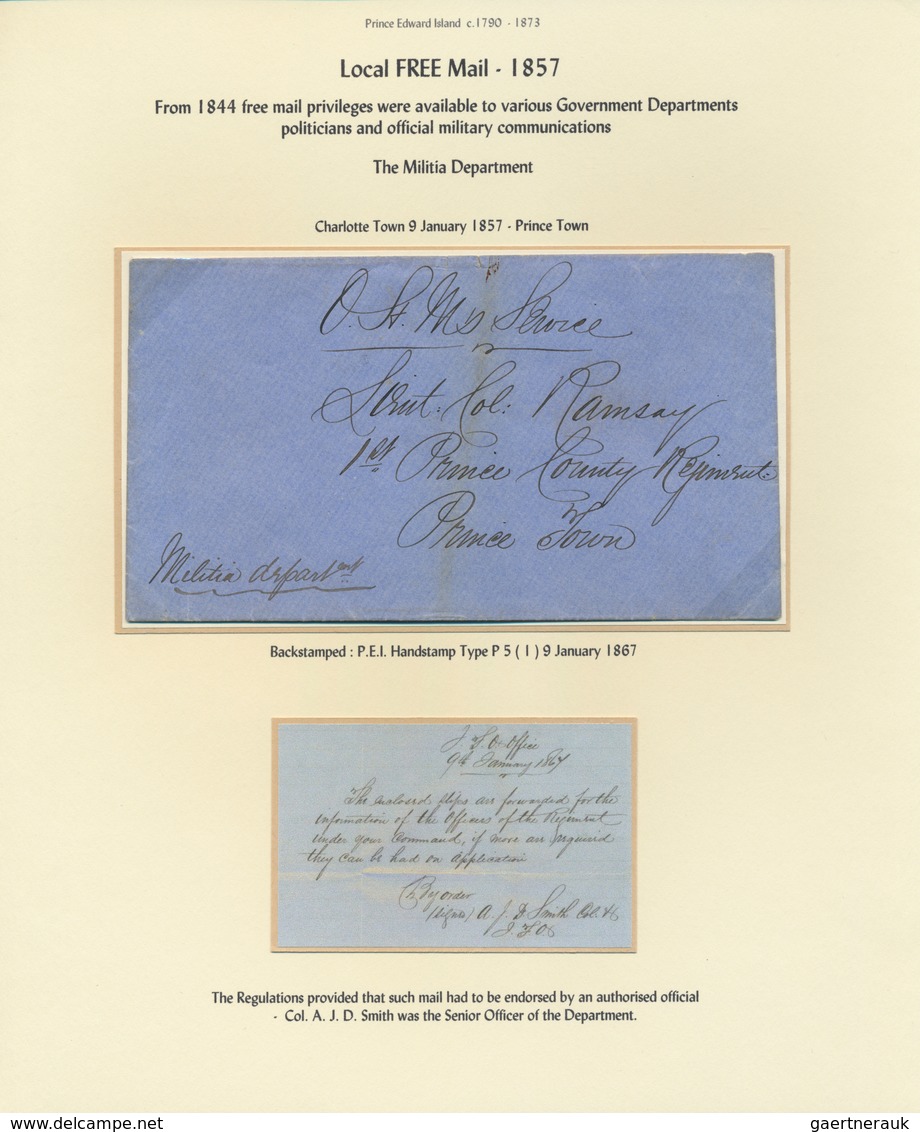 Prince Edward Island c.1790 - 1873
Local FREE Mail - 1857
From 1844 free mail privileges were available to various Government Departments
politicians and official military communications
The Militia Department
Charlotte Town 9 January 1857 - Prince Town
O. H. M's Service
Lieut. Col: Ramsay
1st Prince County Regiment
Prince Town
Militia department
Backstamped : P.E.I. Handstamp Type P 5 ( 1 ) 9 January 1867
Office
9th January 1867
The enclosed slips are forwarded for the
information of the Officers of the Regiment
under your Command, if more are required
they can be had on application
By order
(signed) A. J. D Smith Col. &
The Regulations provided that such mail had to be endorsed by an authorised official
- Col. A. J. D. Smith was the Senior Officer of the Department.
www.delcampe.net
gaertnerauk